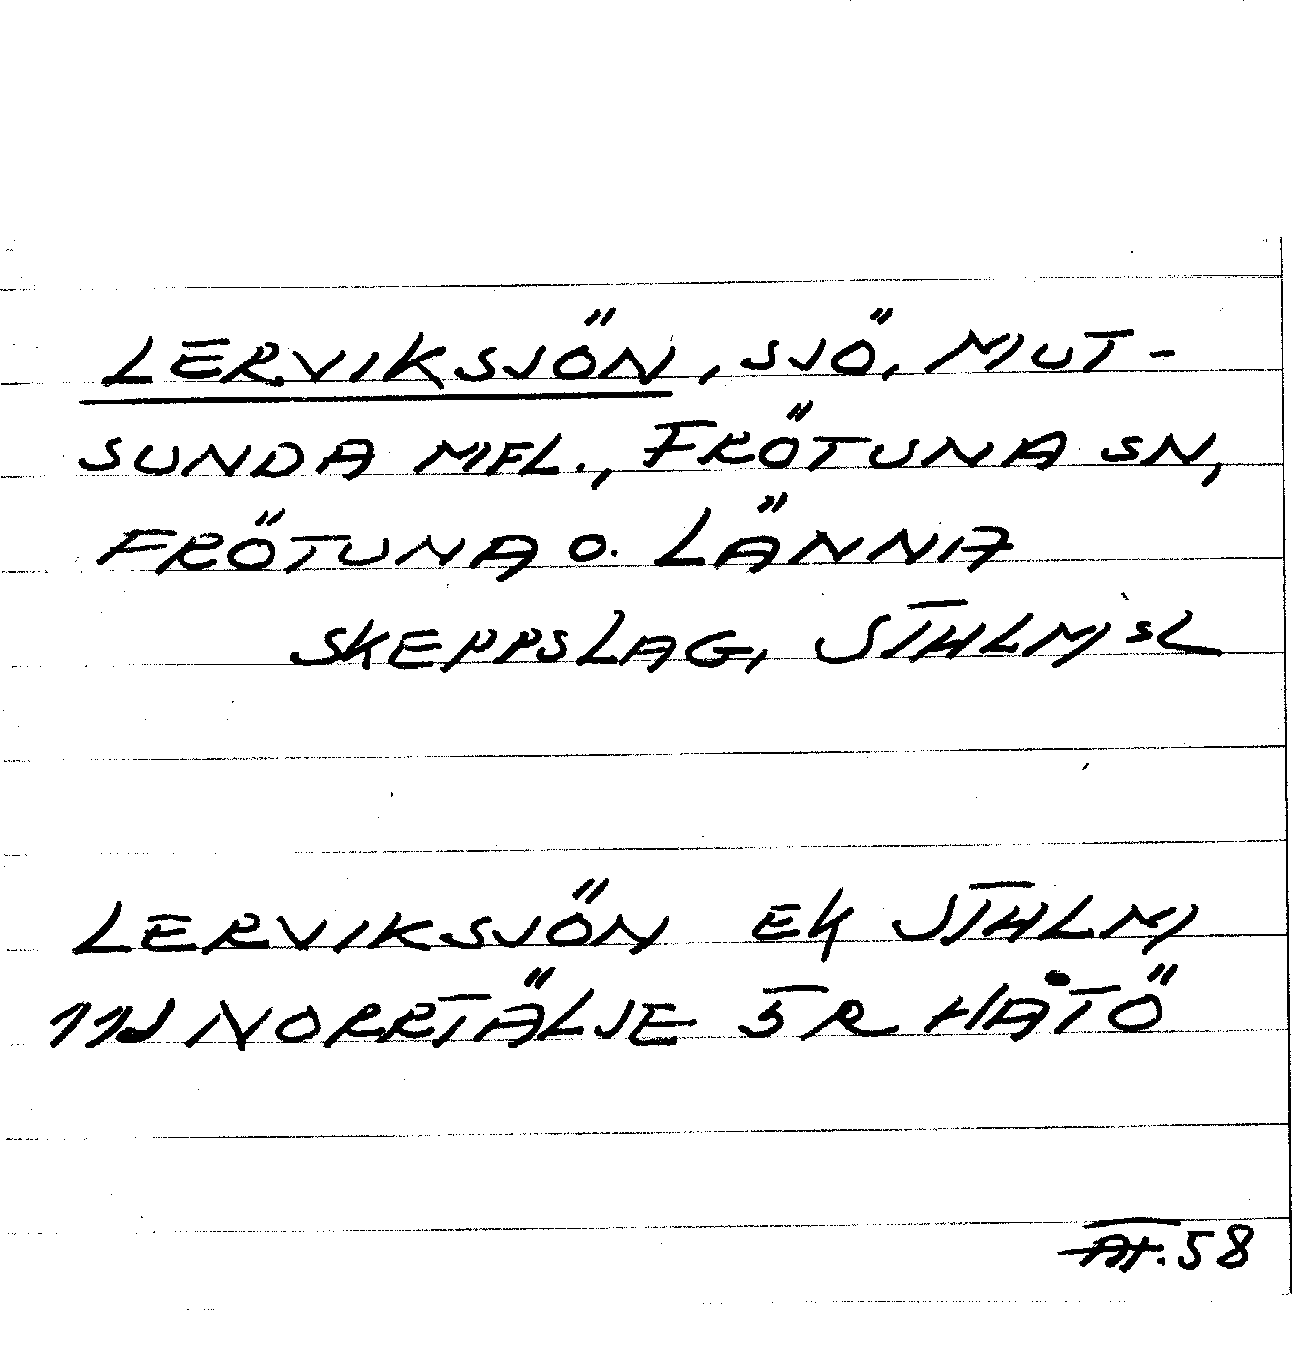 LERVIKSJÖN, SJÖ, MUT-
SUNDA MFL., FRÖTUNA SN,
FRÖTUNA O. LÄNNA
SKEPPSLAG, STHLMSL
LERVIKSJÖN EK STHLM
11J NORRTÄLJE SR HÅTÖ
58